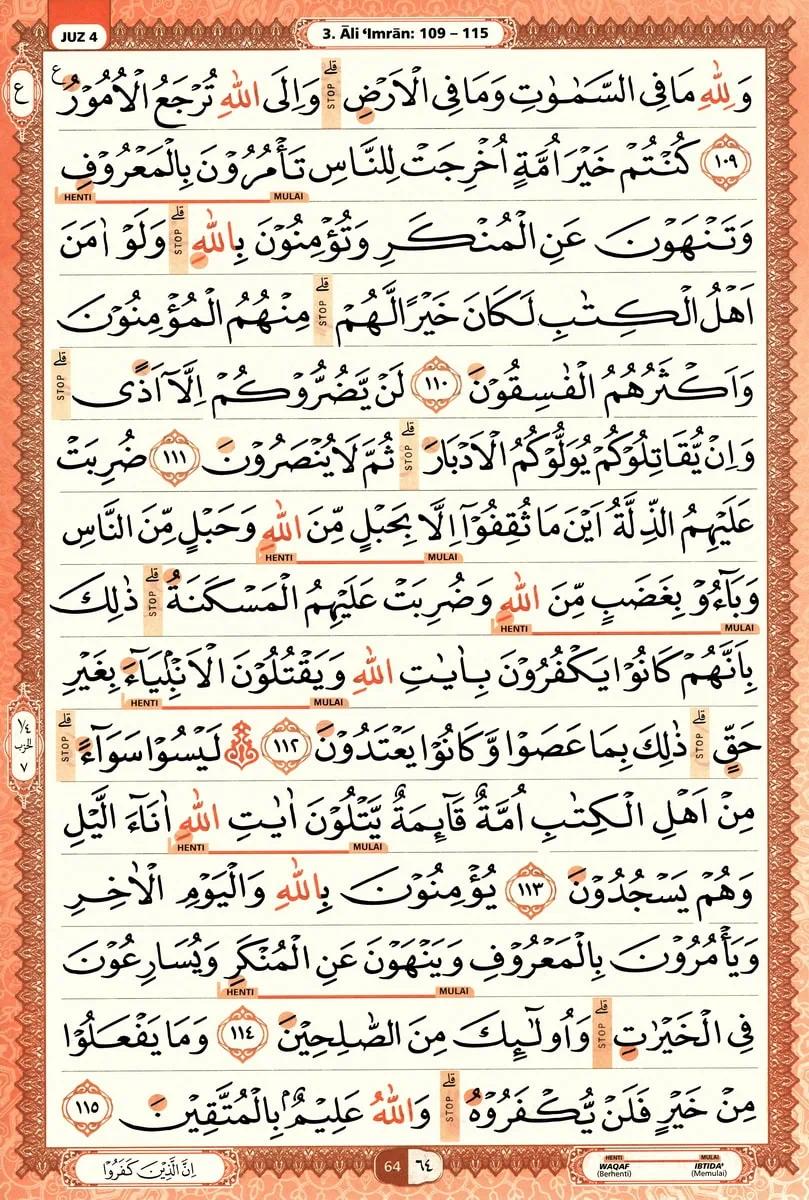 JUZ 4
3. Āli ‘Imrān: 109 – 115
ع
وَلِلّٰهِ مَا فِى السَّمٰوٰتِ وَمَا فِى الْاَرْضِۗ وَاِلَى اللّٰهِ تُرْجَعُ الْاُمُوْرُ ع
STOP
١٠٩ كُنْتُمْ خَيْرَ اُمَّةٍ اُخْرِجَتْ لِلنَّاسِ تَأْمُرُوْنَ بِالْمَعْرُوْفِ
MULAI HENTI
وَتَنْهَوْنَ عَنِ الْمُنْكَرِ وَتُؤْمِنُوْنَ بِاللّٰهِۗ وَلَوْ اٰمَنَ
STOP
اَهْلُ الْكِتٰبِ لَكَانَ خَيْرًا لَّهُمْۗ مِنْهُمُ الْمُؤْمِنُوْنَ
STOP
وَاَكْثَرُهُمُ الْفٰسِقُوْنَ ١١٠ لَنْ يَّضُرُّوْكُمْ اِلَّآ اَذًىۗ
STOP
وَاِنْ يُّقَاتِلُوْكُمْ يُوَلُّوْكُمُ الْاَدْبَارَۗ ثُمَّ لَا يُنْصَرُوْنَ ١١١ ضُرِبَتْ
STOP
عَلَيْهِمُ الذِّلَّةُ اَيْنَ مَا ثُقِفُوْٓا اِلَّا بِحَبْلٍ مِّنَ اللّٰهِ وَحَبْلٍ مِّنَ النَّاسِ
MULAI HENTI
وَبَاۤءُوْ بِغَضَبٍ مِّنَ اللّٰهِ وَضُرِبَتْ عَلَيْهِمُ الْمَسْكَنَةُۗ ذٰلِكَ
STOP
MULAI HENTI
بِاَنَّهُمْ كَانُوْا يَكْفُرُوْنَ بِاٰيٰتِ اللّٰهِ وَيَقْتُلُوْنَ الْاَنْۢبِيَاۤءَ بِغَيْرِ
MULAI HENTI
حَقٍّۗ ذٰلِكَ بِمَا عَصَوْا وَّكَانُوْا يَعْتَدُوْنَ ١١٢ لَيْسُوْا سَوَاۤءًۗ
STOP STOP
١/٤
الحزب
٧
مِنْ اَهْلِ الْكِتٰبِ اُمَّةٌ قَاۤىِٕمَةٌ يَّتْلُوْنَ اٰيٰتِ اللّٰهِ اٰنَاۤءَ الَّيْلِ
MULAI HENTI
وَهُمْ يَسْجُدُوْنَ ١١٣ يُؤْمِنُوْنَ بِاللّٰهِ وَالْيَوْمِ الْاٰخِرِ
وَيَأْمُرُوْنَ بِالْمَعْرُوْفِ وَيَنْهَوْنَ عَنِ الْمُنْكَرِ وَيُسَارِعُوْنَ
MULAI HENTI
فِى الْخَيْرٰتِۗ وَاُولٰۤىِٕكَ مِنَ الصّٰلِحِيْنَ ١١٤ وَمَا يَفْعَلُوْا
STOP
مِنْ خَيْرٍ فَلَنْ يُّكْفَرُوْهُۗ وَاللّٰهُ عَلِيْمٌۢ بِالْمُتَّقِيْنَ ١١٥
STOP
اِنَّ الَّذِيْنَ كَفَرُوْا
64 ٦٤
HENTI MULAI
WAQAF IBTIDA'
(Berhenti) (Memulai)